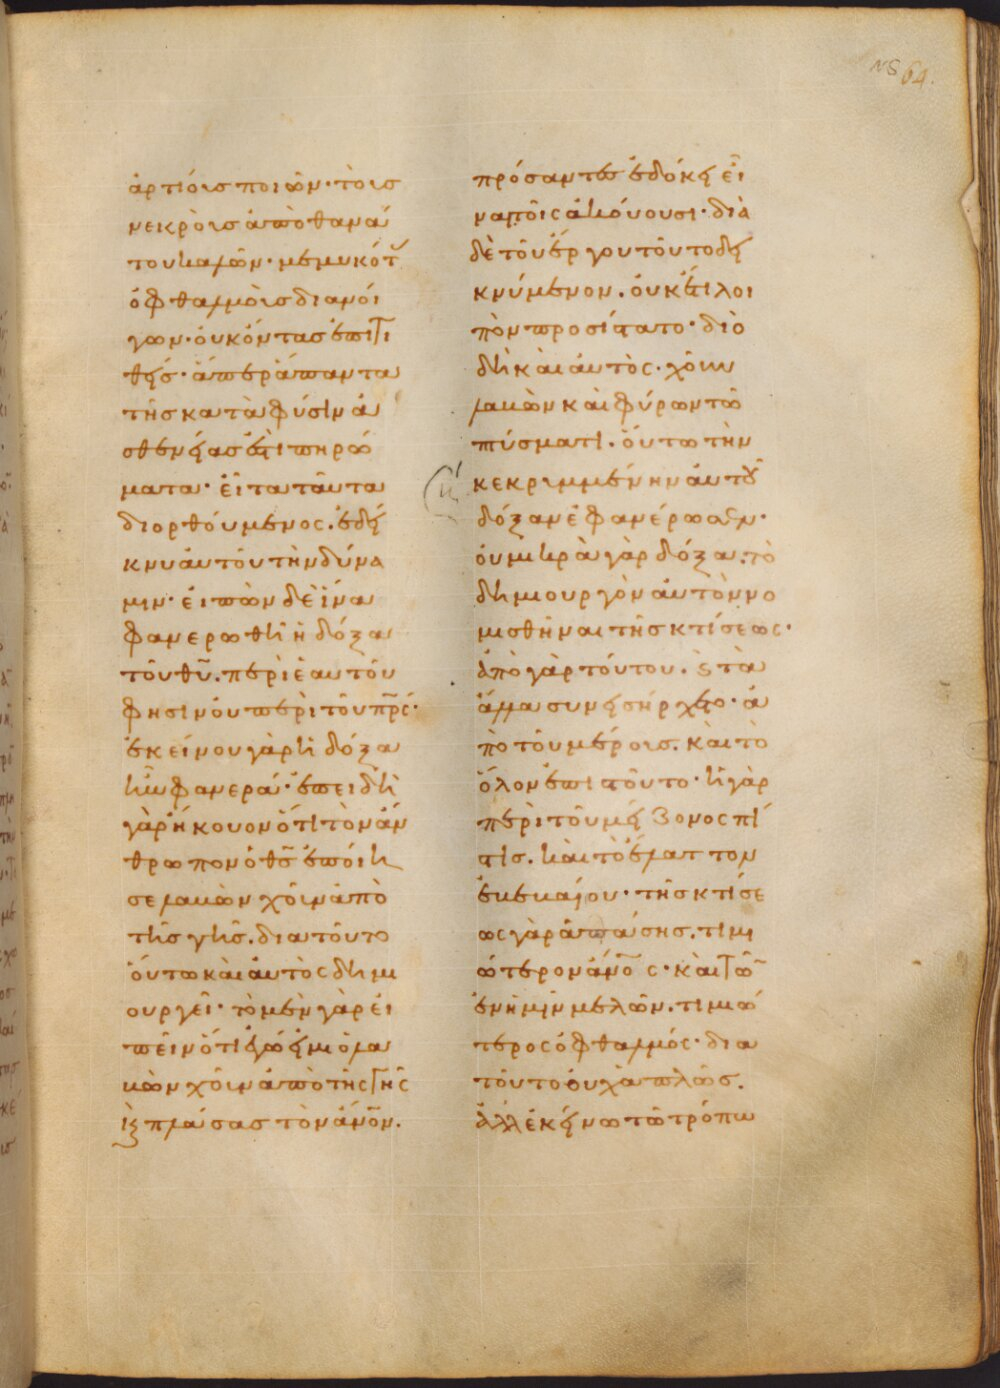 64.
ἀρτίοις ποιῶν· τοῖς
νεκροῖς ἀπὸ θανά
του καλῶν· μεμυκότ
ὀφθαλμοῖς διανοί
γων· οὐκ ὄντας ἐπιτι
θείς· ἅπερ ἅπαντα
τῆς κατὰ φύσιν ἀ
σθενείας ἐστὶ πηρώ
ματα· εἶτα ταῦτα
διορθούμενος. ἐδεί
κνυ αὐτοῦ τὴν δύνα
μιν· εἰπὼν δὲ ἵνα
φανερωθῆ ἡ δόξα
τοῦ θῦ. περὶ ἑαυτοῦ
φησὶν οὐ περὶ τοῦ πρς·
ἐκείνου γὰρ ἡ δόξα
ἦν φανερά· ἐπειδὴ
γὰρ ἤκουον ὅτι τὸν ἄν
θρωπον ὁ θς ἐποίη
σε λαβὼν χοῦν ἀπὸ
τῆς γῆς. διατοῦτο
οὕτω καὶ αὐτὸς δημι
ουργεῖ· τὸ μὲν γὰρ εἰ
πεῖν ὅτι ἐγώ εἰμι ὁ λα
βὼν χοῦν ἀπὸ τῆς γῆς
κ πλάσας τὸν ἄνον.
πρόσαντες ἐδόκει εἶ
ναι τοῖς ἀκούουσι· διὰ
δὲ τοῦ ἔργου τοῦτο δει
κνύμενον. οὐκέτι λοι
πὸν προσίστατο· διὸ
δὴ καὶ αὐτὸς· χοῦν
λαβὼν καὶ φύρων τῶ
πτύσματι. οὕτω τὴν
κεκριμμένην αὐτοῦ
δόξαν ἐφανέρωσεν·
οὐ μικρὰ γὰρ δόξα. τὸ
δημιουργὸν αὐτὸν νο
μισθῆναι τῆς κτίσεως·
ἀπὸ γὰρ τούτου. ϛ τὰ
ἄλλα συνεισήρχετο· ἀ
πὸ τοῦ μέρους. καὶ τὸ
ὅλον ἐπιστοῦτο· ἡ γὰρ
περὶ τοῦ μείζονος πί
στις. καὶ τὸ ἔλαττον
ἐβεβαίου· τῆς κτίσε
ως γὰρ ἁπάσης. τιμι
ώτερον ἄνος· καὶ τῶ
ἐν ἡμῖν μελῶν. τιμιώ
τερος ὀφθαλμός· δια
τοῦτο οὐχ ἁπλῶς.
ἀλλ ἐκείνω τῶ τρόπω